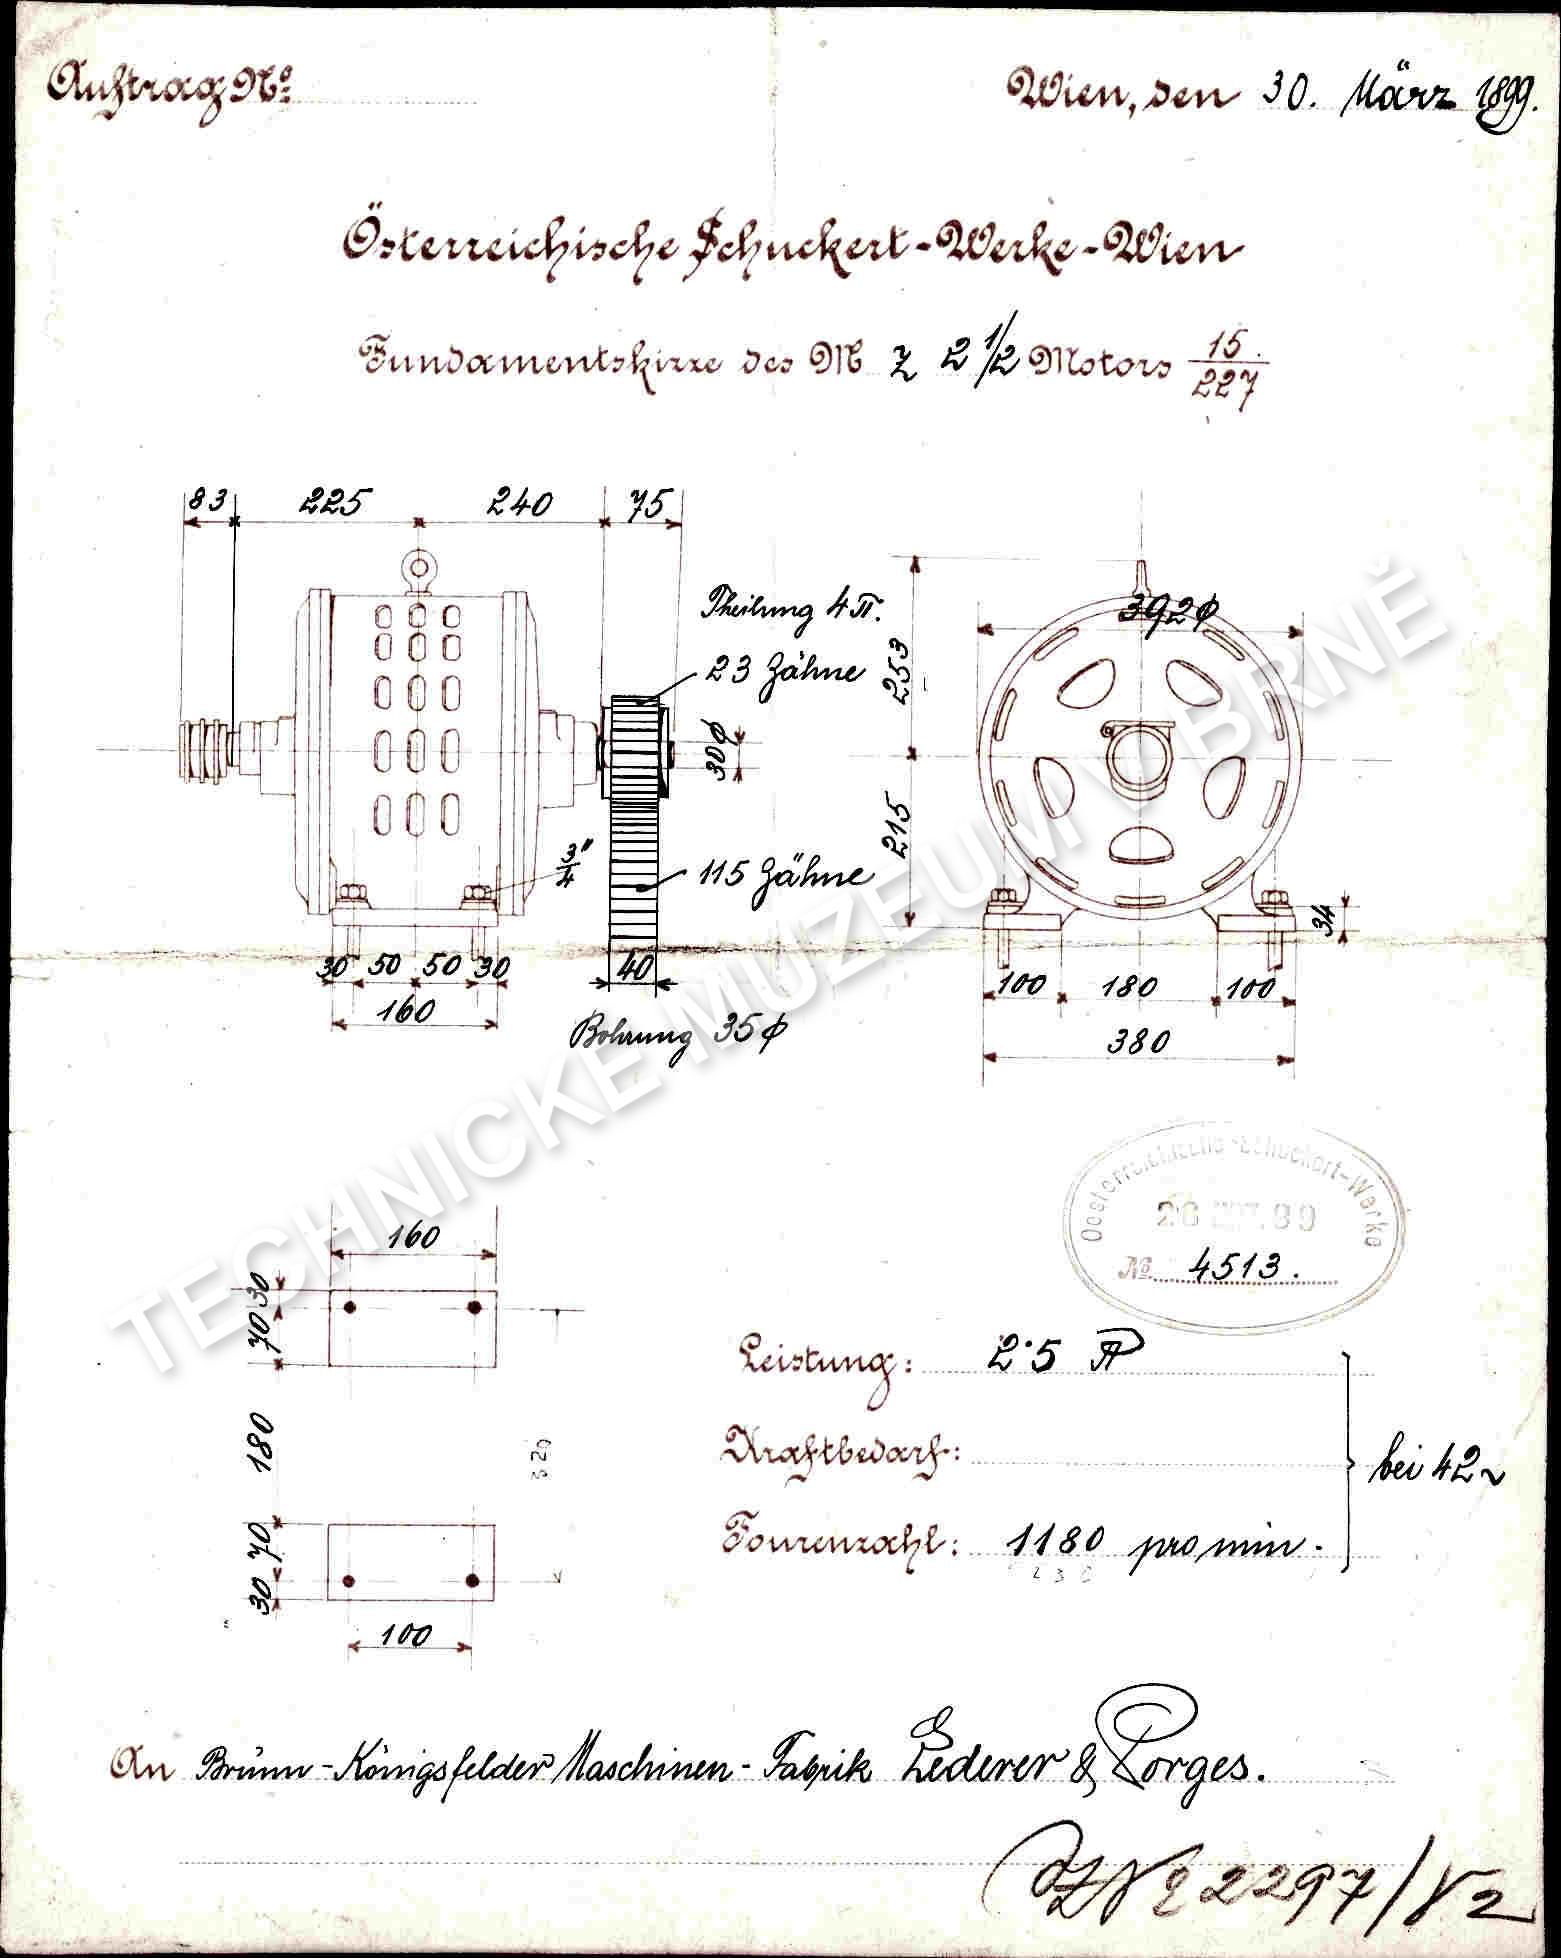 Auftrag No
Wien, den 30. März 1899.
Österreichische Schuckert-Werke-Wien
Fundamentskizze des M Z 2 1/2 Motors 15/227
83 225 240 75
Theilung 4π.
23 Zähne
30φ
3/4"
115 Zähne
30 50 50 30
160
40
Bohrung 35φ
392φ
253
215
34
100 180 100
380
TECHNICKÉ MUZEUM V BRNĚ
160
30
70
180
70
30
320
100
Oesterreichische Schuckert-Werke
No. 4513.
Leistung: 2·5 P
Kraftbedarf:
Tourenzahl: 1180 pro min.
bei 42~
An Brünn-Königsfelder Maschinen-Fabrik Lederer & Porges.
2297/